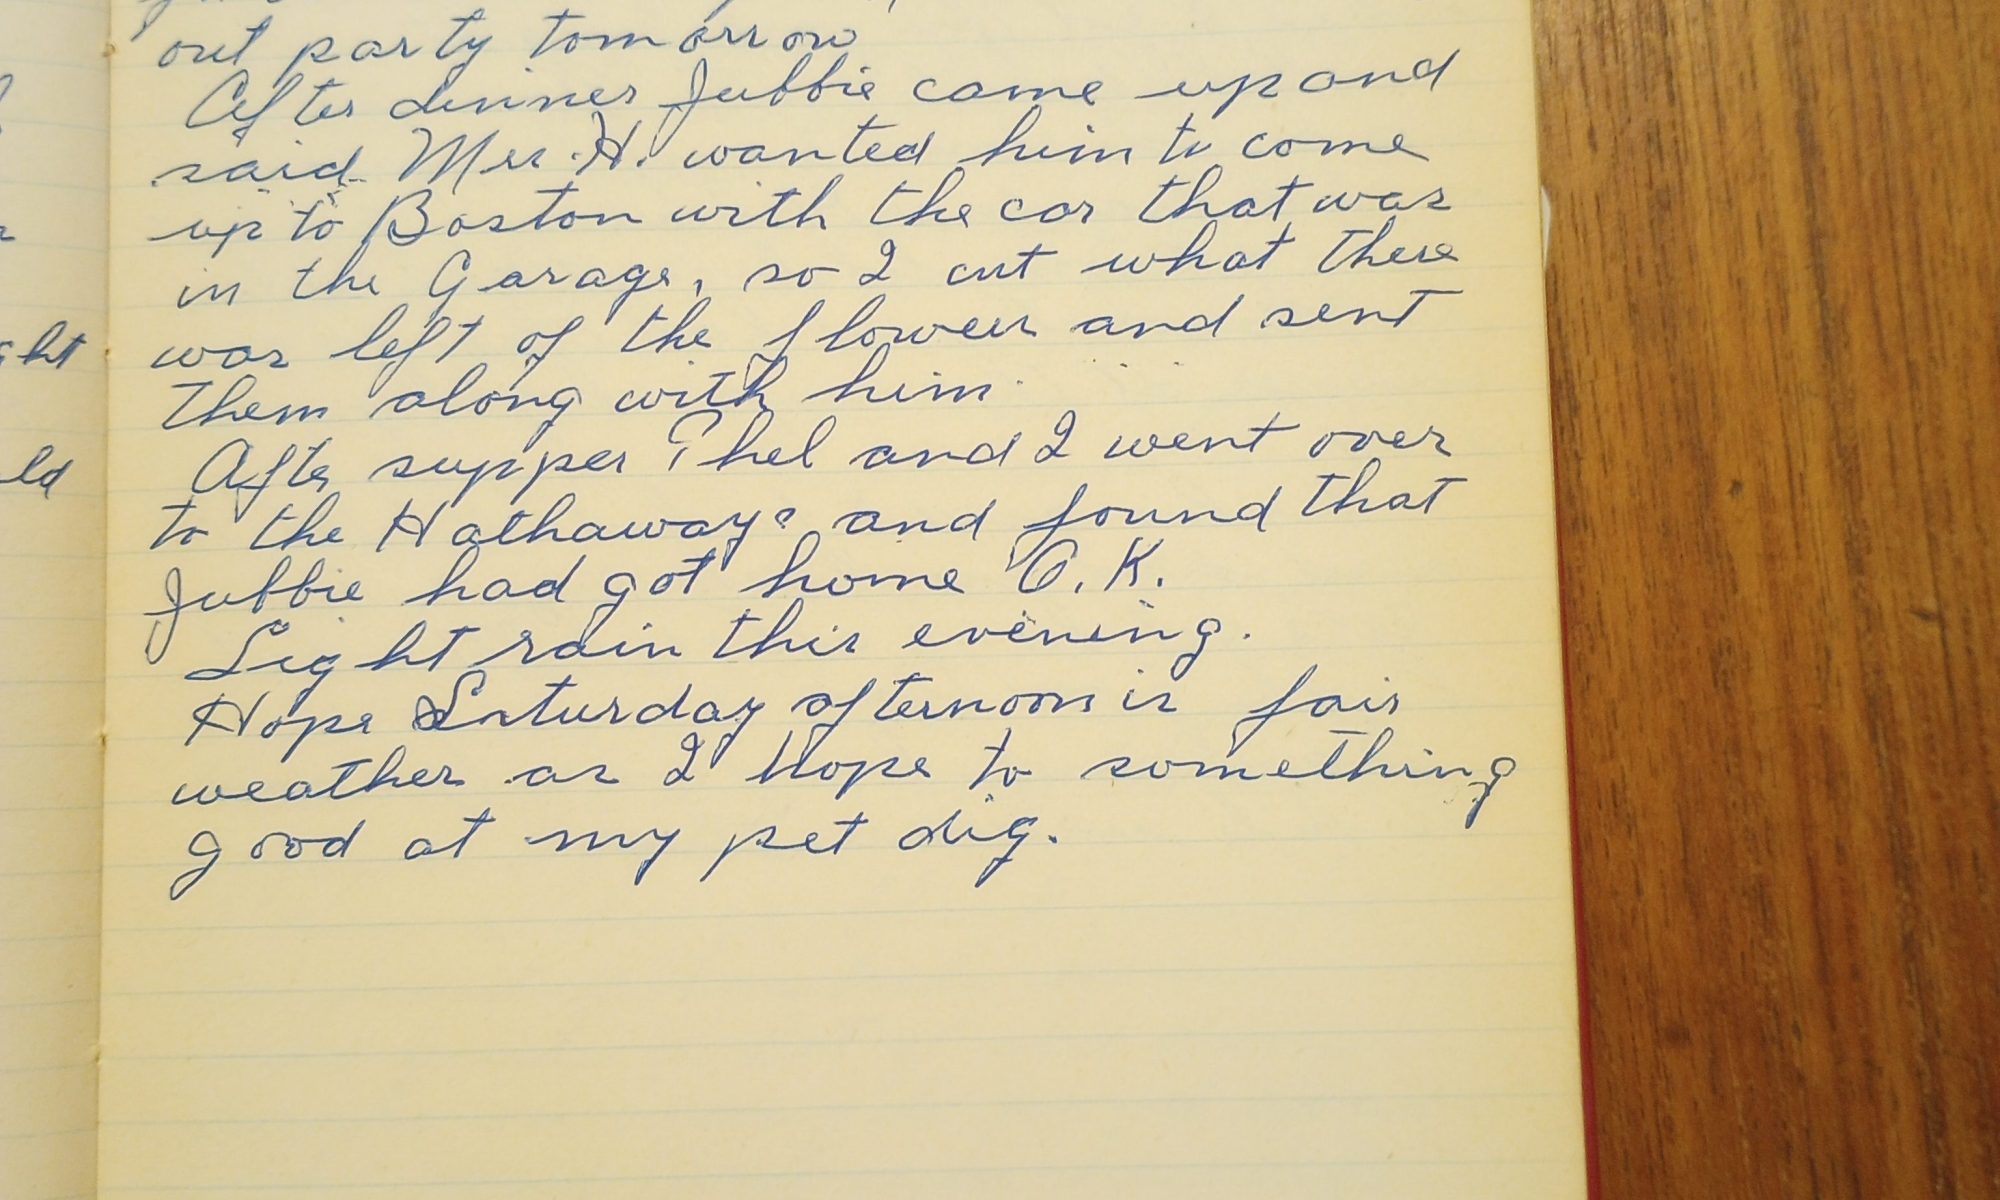 out party tomorrow
After dinner Jubbie came up and
said Mrs. H. wanted him to come
up to Boston with the car that was
in the Garage, so I cut what there
was left of the flowers and sent
them along with him.
After supper Ethel and I went over
to the Hathaways and found that
Jubbie had got home O.K.
Light rain this evening.
Hope Saturday afternoon is fair
weather as I hope to something
good at my pet dig.
ght
ld